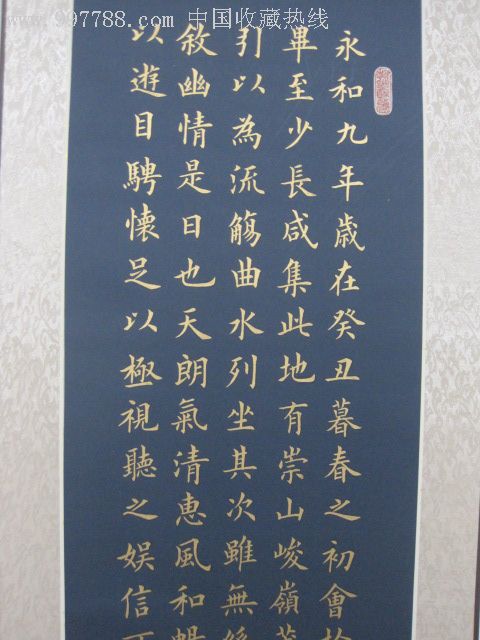 www.C97788.com 中国收藏热线
永和九年歲在癸丑暮春之初會
畢至少長咸集此地有崇山峻嶺
引以為流觴曲水列坐其次雖無
敘幽情是日也天朗氣清惠風和暢
以遊目騁懷足以極視聽之娛信可